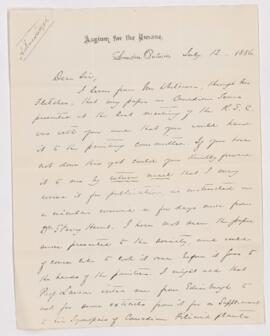 Asylum for the Insane,
London Ontario July 12, 1886
Dear Sir,
I learn from Mr Whiteaves, through Mr
Fletcher, that my paper on Canadian
presented at the last meeting of the R.S.C.
was with you and that you would hand
it to the printing committee. If you have
not done this yet could you kindly forward
it to me by return mail that I may
revise it for publication, as instructed me
a member received a few days since from
Dr. Sterry Hunt. I have not seen the paper
since presented to the society, and
of course like to look it over before it goes to
the hands of the printers. I might add that
Prof Lawson writes me from Edinburgh to
ask for some
to his Synopsis of Canadian Filicoid plants